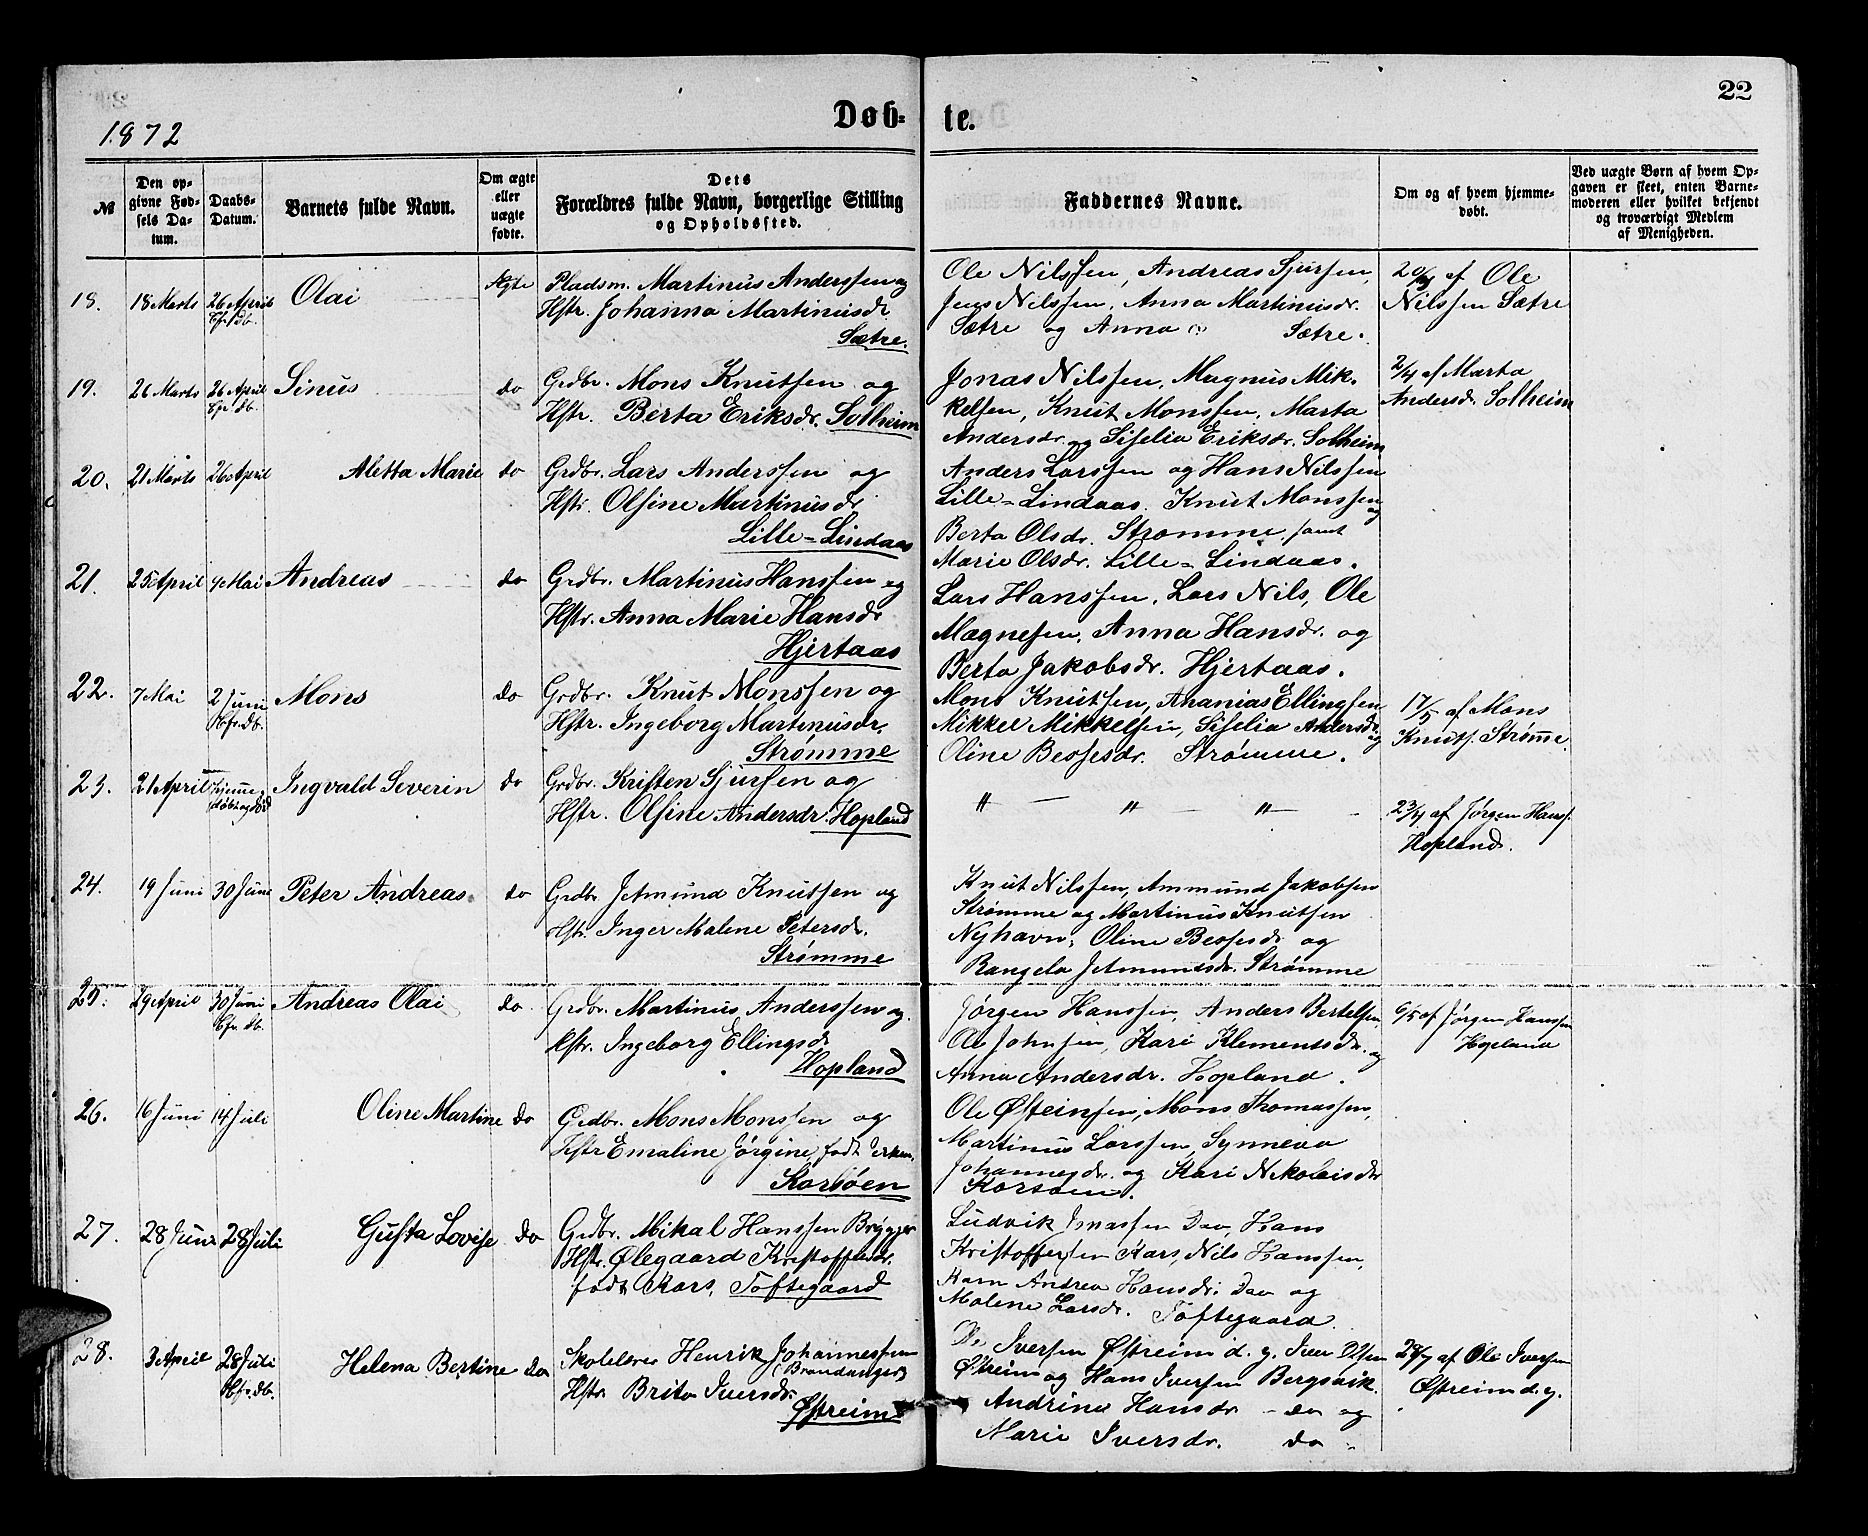 22
1872
Døb-te.
№
Den opgivne Fødsels Datum.
Daabs-Datum.
Barnets fulde Navn.
Om ægte eller uægte fødte.
Dets Forældres fulde Navn, borgerlige Stilling og Opholdssted.
Faddernes Navne.
Om og af hvem hjemmedøbt.
Ved uægte Børn af hvem Opgaven er skeet, enten Barnemoderen eller hvilket bekjendt og troværdigt Medlem af Menigheden.
18. 18 Marts 26 April Olai Ægte
Pladsm. Martinus Anderssen og
Hstr. Johanna Martinusdr
Sætre.
Ole Nilssen, Andreas Sjursen,
Jens Nilssen, Anna Martinusdr.
Sætre og Anna Sætre.
af Ole
Nilssen Sætre
19. 26 Marts 26 April Sinus do
Grdbr. Mons Knutsen og
Hstr. Berta Eriksdr. Solheim
Jonas Nilssen, Magnus Mik-
kelsen, Knut Monssen, Marta
Andersdr. og Siselia Eriksdr. Solheim
2/4 af Marta
Andersdr. Solheim
20. 21 Marts 26 April Aletta Marie do
Grdbr. Lars Anderssen og
Hstr. Olsine Martinusdr
Lille-Lindaas
Anders Larssen og Hans Nilssen
Lille-Lindaas. Knut Monssen og
Berta Olsdr. Strømme, samt
Marie Olsdr. Lille-Lindaas.
21. 25 April 4 Mai Andreas do
Grdbr. Martinus Hanssen og
Hstr. Anna Marie Hansdr
Hjertaas
Lars Hanssen, Lars Nils, Ole
Magnesen, Anna Hansdr. og
Berta Jakobsdr. Hjertaas.
22. 7 Mai 2 Juni Mons do
Grdbr. Knut Monssen og
Hstr. Ingeborg Martinusdr.
Strømme
Mons Knutsen, Ananias Ellingsen
Mikkel Mikkelsen, Siselia Andersdr. og
Oline Bessesdr. Strømme.
17/5 af Mons
Knuts. Strømme.
23. 21 April hjemmedøbt og død Ingvald Severin do
Grdbr. Kristen Sjursen og
Hstr. Olsine Andersdr. Hopland
" — " — " —
23/4 af Jørgen Hanss.
Hopland.
24. 19 Juni 30 Juni Peter Andreas do
Grdbr. Jetmund Knutsen og
Hstr. Inger Malene Petersdr.
Strømme
Knut Nilssen, Ammund Jakobsen
Strømme og Martinus Knutsen
Nyhavn, Oline Bessesdr og
Rangela Jetmundsdr. Strømme
25. 29 April 30 Juni Andreas Olai do
Grdbr. Martinus Anderssen og
Hstr. Ingeborg Ellingsdr
Hopland
Jørgen Hanssen, Anders Bertelsen,
Ole Johnsen, Kari Klementsdr. og
Anna Andersdr. Hopland.
6/5 af Jørgen Hanssen
Hopland
26. 16 Juni 14 Juli Oline Martine do
Grdbr. Mons Monssen og
Hstr Emaline Jørgine, født
Korsøen
Ole Østeinsen, Mons Thomassen,
Martinus Larssen, Synneva
Johannesdr. og Kari Nikolaisdr
Korsøen.
27. 28 Juni 28 Juli Gusta Lovise do
Grdbr. Mikal Hanssen Brygger
Hstr. Ølegaard Kristoffersdr.
født Kars, Toftegaard
Ludvik Hans
Kristoffersen Kars, Nils Hanssen,
Karn Andrea Hansdr. og
Malene Larsdr. Toftegaard.
28. 3 April 28 Juli Helena Bertine do
Skolelærer Henrik Johannessen
(Brandanger)
Hstr Brita Iversdr.
Østreim
Iversen Østreim d. y. Iver Olsen
Østreim og Hans Iversen Bergsvik.
Andrina Hansdr — do og
Marie Iversdr. do —
af Ole Iversen
Østreim d. y.